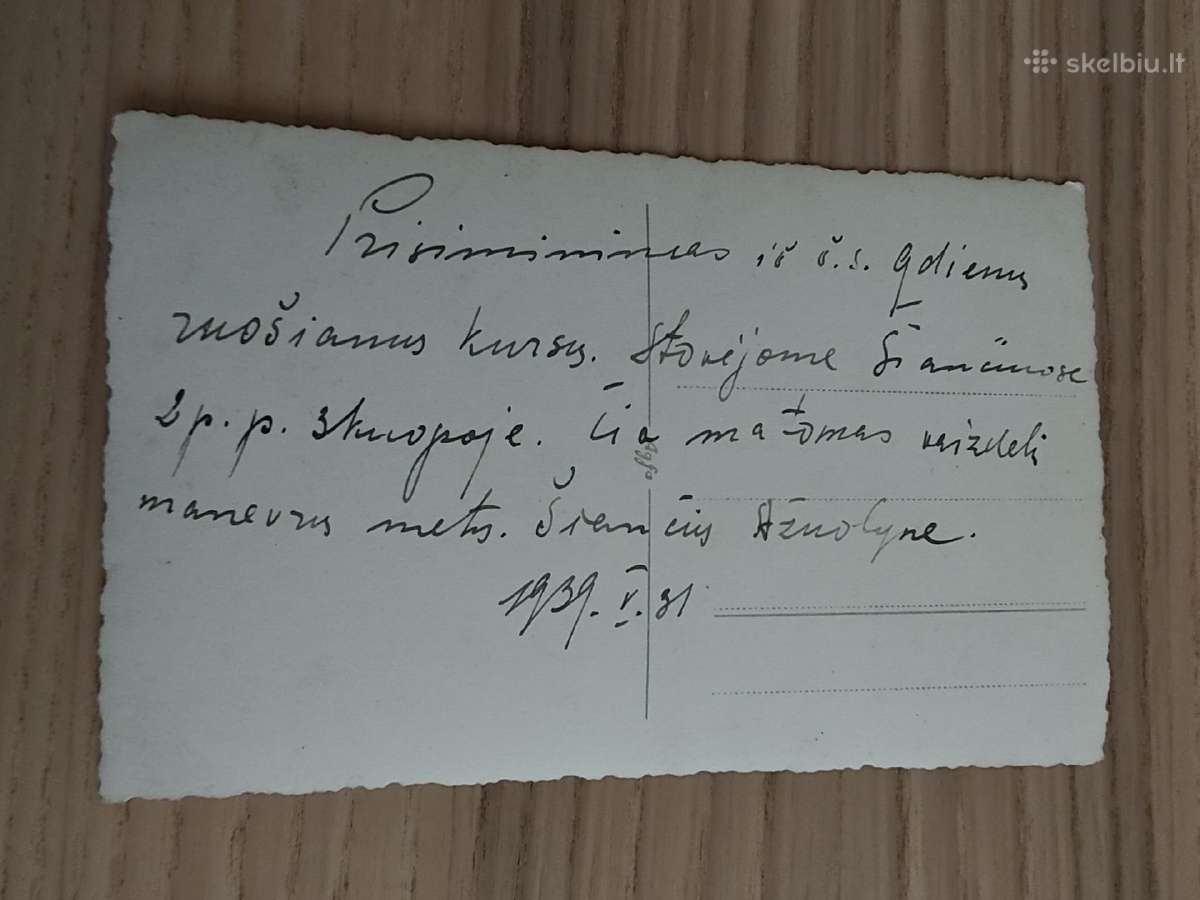 skelbiu.lt
Prisiminimas iš š.s. 9 dienų
ruošiamų kursų. Stovėjome Šiančiuose
2 p. p. 3 kuopoje. Čia matomas vaizdelis
manevrų metu. Šiančių Ažuolyne.
1939. V. 31
Agfa